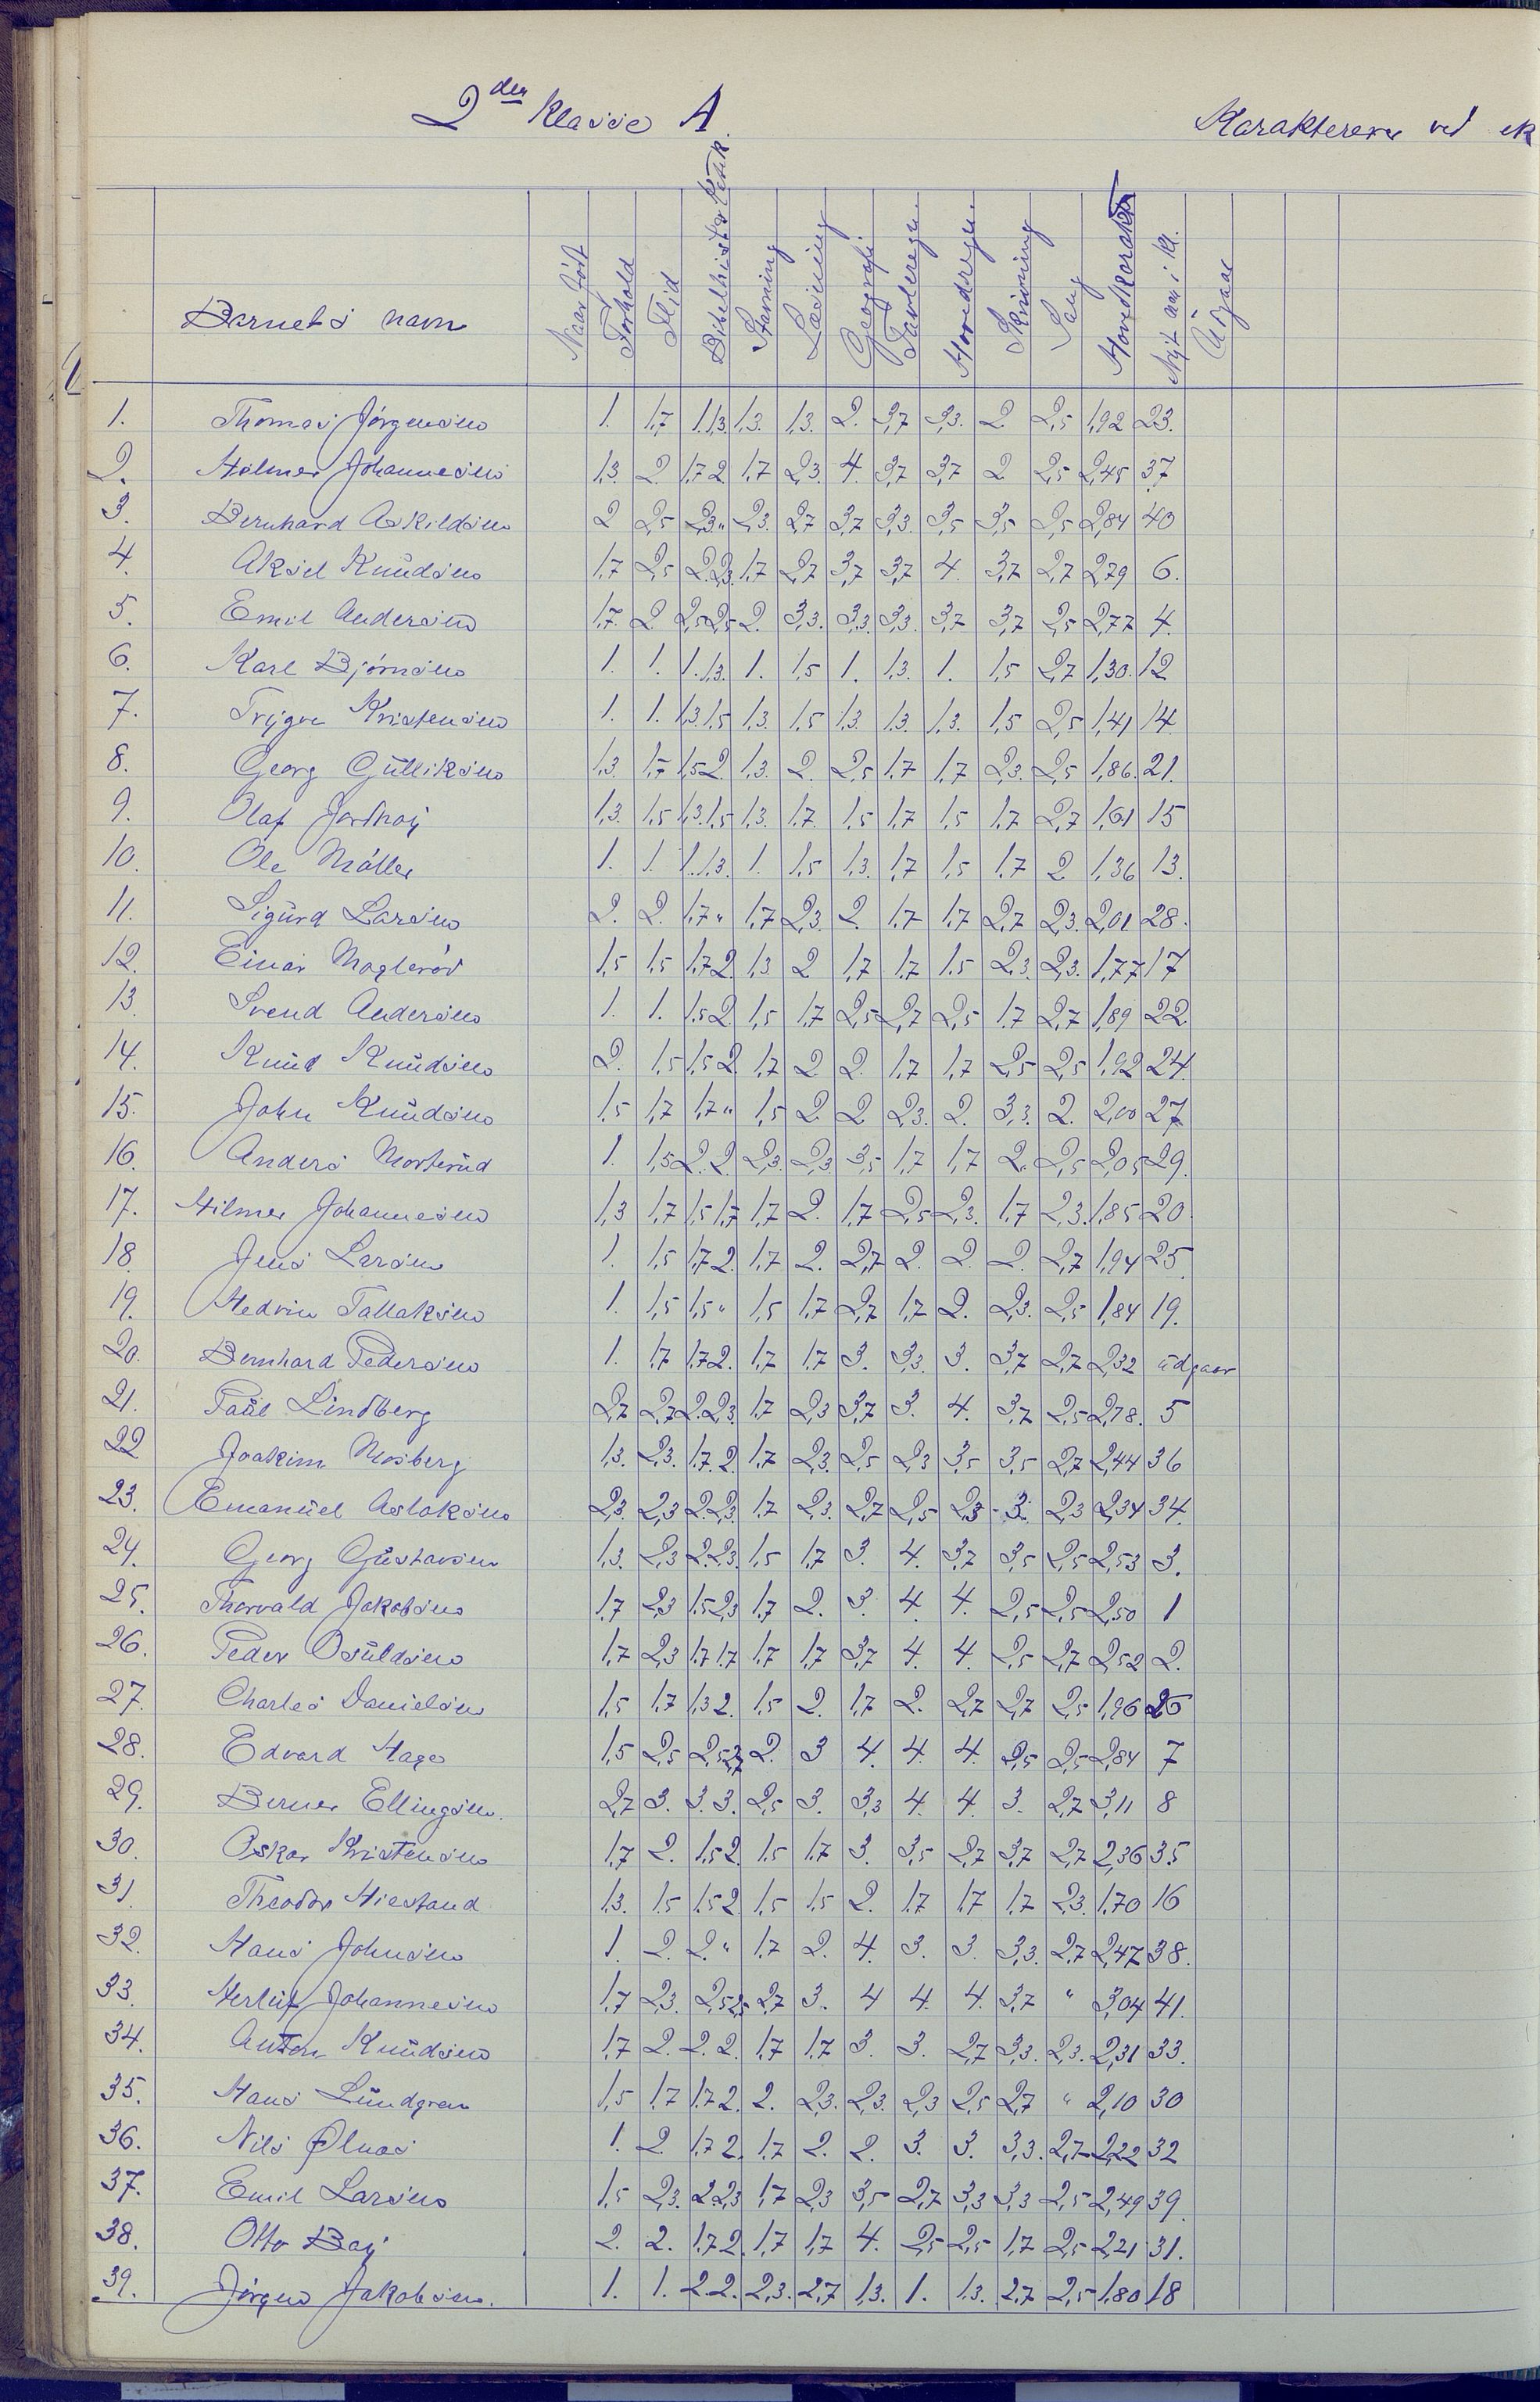 2den Klasse A.
Karakterer ved ek
Barnets navn Naar født Forhold Flid Bibelhist. Katek. Stavning Læsning Geografi Tavleregn. Hovedregn. Skrivning Sang Hovedkarakter Nyt nr. i kl. Udgaar
1. Thomas Jørgensen 1. 1,7 1. 1,3 1,3. 1,3. 2. 2,7 2,3. 2 2,5 1,92 23.
2. Hilmer Johannesen 1,3 2. 1,7 2. 1,7 2,3. 4. 3,7 3,7 2 2,5 2,45 37
3. Bernhard Askildsen 2 2,5 2,3 " 2,3. 2,7 3,7 3,3. 3,5 3,5 2,5 2,84 40
4. Aksel Knudsen 1,7 2,5 2. 2,3. 1,7 2,7 3,7 3,7 4. 3,7 2,7 2,79 6.
5. Emil Andersen 1,7. 2. 2,5 2,5 2. 3,3. 3,3. 3,3. 3,7 3,7 2,5 2,77 4.
6. Karl Bjørnsen 1. 1. 1. 1,3. 1. 1,5 1. 1,3. 1. 1,5 2,7 1,30. 12
7. Trygve Kristensen 1. 1. 1,3. 1,5 1,3. 1,5 1,3. 1,3. 1,3. 1,5 2,5 1,41 14.
8. Georg Gulliksen 1,3. 1,7 1,5 2. 1,3. 2. 2,5 1,7 1,7 2,3. 2,5 1,86. 21.
9. Olaf Jordhøy 1,3. 1,5 1,3. 1,5 1,3. 1,7. 1,5 1,7 1,5 1,7 2,7 1,61 15
10. Ole Møller 1. 1. 1. 1,3. 1. 1,5 1,3. 1,7 1,5 1,7 2 1,36 13.
11. Sigurd Larsen 2. 2. 1,7 " 1,7 2,3. 2. 1,7 1,7 2,7 2,3. 2,01 28.
12. Einar Magleröd 1,5 1,5 1,7 2. 1,3 2 1,7 1,7 1,5 2,3. 2,3. 1,77 17
13. Svend Andersen 1. 1. 1,5 2. 1,5 1,7 2,5 2,7 2,5 1,7 2,7 1,89 22.
14. Knud Knudsen 2. 1,5 1,5 2. 1,7 2 2. 1,7 1,7 2,5 2,5 1,92 24.
15. John Knudsen 1,5 1,7 1,7 " 1,5 2. 2. 2,3. 2. 3,3. 2. 2,00 27.
16. Anders Morterud 1. 1,5 2. 2. 2,3. 2,3 3,5 1,7 1,7 2. 2,5 2,05 29.
17. Hilmer Johannesen 1,3 1,7 1,5 1,7 1,7 2. 1,7 2,5 2,3. 1,7 2,3. 1,85 20.
18. Jens Larsen 1. 1,5 1,7 2. 1,7 2. 2,7 2. 2. 2. 2,7 1,94 25
19. Hedvin Tallaksen 1. 1,5 1,5 " 1,5 1,7 2,7 1,7 2. 2,3. 2,5 1,84 19.
20. Bernhard Pedersen 1. 1,7 1,7 2. 1,7 1,7 3. 3,3 3. 3,7 2,7 2,32 udgaar
21. Paul Lindberg 2,7 2,7 2. 2,3. 1,7 2,3 3,7 3. 4. 3,7 2,5 2,78. 5
22 Joakim Mosberg 1,3. 2,3. 1,7. 2. 1,7 2,3. 2,5 2,3 3,5 3,5 2,7 2,44 36
23. Emanuel Aslaksen 2,3. 2,3 2. 2,3. 1,7 2,3. 2,7 2,5 2,3 3. 2,3 2,34 34.
24. Georg Gustavsen 1,3. 2,3 2. 2,3. 1,5 1,7 3. 4. 3,7 3,5 2,5 2,53 3.
25. Thorvald Jakobsen 1,7 2,3 1,5 2,3 1,7 2. 3. 4. 4. 2,5 2,5 2,50 1
26. Peder Osuldsen 1,7 2,3 1,7 1,7 1,7 1,7 3,7 4. 4. 2,5 2,7 2,52 2.
27. Charles Danielsen 1,5 1,7 1,3 2. 1,5 2. 1,7 2. 2,7 2,7 2,5 1,96 26
28. Edvard Hage 1,5 2,5 2,5 2,7 2. 3 4. 4. 4. 2,5 2,5 2,84 7
29. Berner Ellingsen. 2,7 3. 3. 3. 2,5 3. 3,3 4. 4. 3. 2,7 3,11 8
30. Oskar Kristensen 1,7 2. 1,5 2. 1,5 1,7 3. 3,5 2,7 3,7 2,7 2,36 35
31. Theodor Hiestand 1,3. 1,5 1,5 2. 1,5 1,5 2. 1,7 1,7 1,7 2,3. 1,70 16
32. Hans Johnsen 1. 2. 2. " 1,7 2. 4. 3. 3. 3,3. 2,7 2,47 38.
33. Herluf Johannesen 1,7 2,3. 2,5 2,7 3. 4 4. 4. 3,7 " 3,04 41.
34. Anton Knudsen 1,7 2. 2. 2. 1,7 1,7 3. 3. 2,7 3,3. 2,3. 2,31 33.
35. Hans Lundgren 1,5 1,7 1,7 2. 2. 2,3. 2,3. 2,3 2,5 2,7 " 2,10 30
36. Nils Ølnas 1. 2. 1,7 2. 1,7 2. 2. 3. 3. 3,3. 2,7 2,22 32
37. Emil Larsen 1,5 2,3. 2. 2,3 1,7 2,3 3,5 2,7 3,3 3,3 2,5 2,49 39.
38. Otto Bay 2. 2. 1,7 2. 1,7 1,7 4. 2,5 2,5 1,7 2,5 2,21 31.
39. Jørgen Jakobsen. 1. 1. 2. 2. 2,3. 2,7 1,3. 1. 1,3. 2,7 2,5 1,80 18